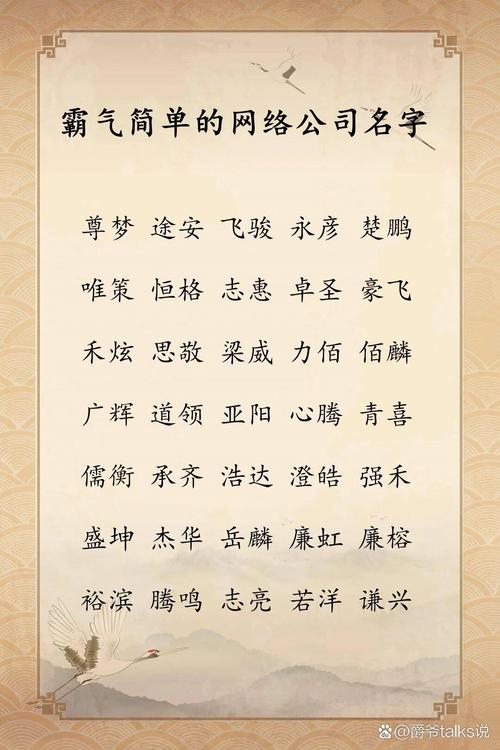 霸气简单的网络公司名字
尊梦 途安 飞骏 永彦 楚鹏
唯策 恒格 志惠 卓圣 豪飞
禾炫 思敬 梁威 力佰 佰麟
广辉 道领 亚阳 心腾 青喜
儒衡 承齐 浩达 澄皓 强禾
盛坤 杰华 岳麟 廉虹 廉榕
裕滨 腾鸣 志亮 若洋 谦兴
@爵爷talks说